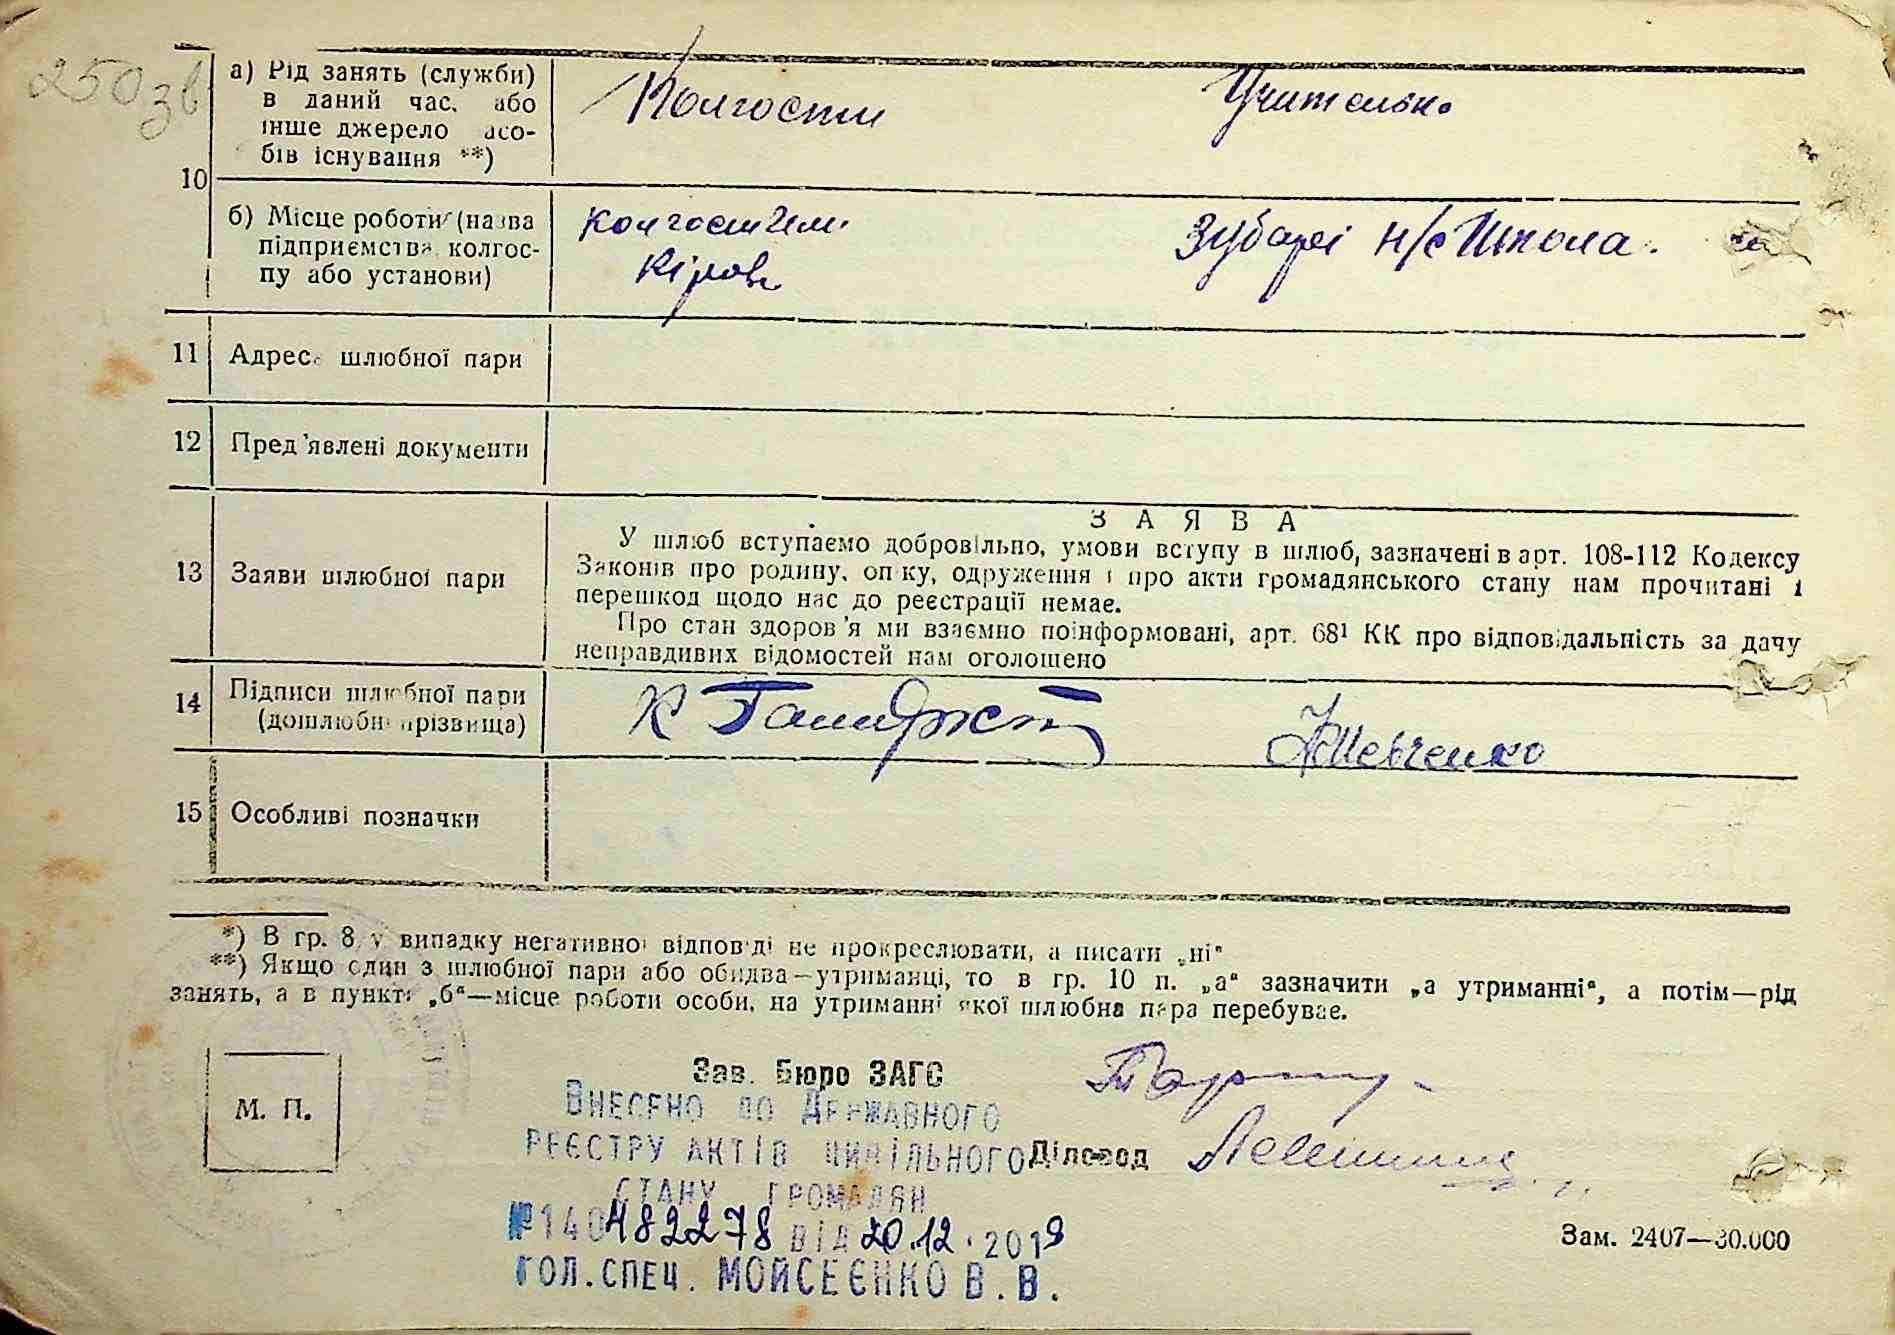 250 зв
10
а) Рід занять (служби)
в даний час, або
інше джерело засо-
бів існування **)
Колгосп
Учителька
б) Місце роботи (назва
підприємства, колгос-
пу або установи)
Колгосп ім.
Кірова
Зубарі н/с Школа.
11 Адреса шлюбної пари
12 Пред'явлені документи
13 Заяви шлюбної пари
ЗАЯВА
У шлюб вступаємо добровільно, умови вступу в шлюб, зазначені в арт. 108-112 Кодексу
Законів про родину, опіку, одруження і про акти громадянського стану нам прочитані і
перешкод щодо нас до реєстрації немає.
Про стан здоров'я ми взаємно поінформовані, арт. 68¹ КК про відповідальність за дачу
неправдивих відомостей нам оголошено
14 Підписи шлюбної пари
(дошлюбні прізвища)
К
Шевченко
15 Особливі позначки
*) В гр. 8 у випадку негативної відповіді не прокреслювати, а писати „ні“
**) Якщо один з шлюбної пари або обидва—утриманці, то в гр. 10 п. „а“ зазначити „а утриманні“, а потім—рід
занять, а в пункті „б“—місце роботи особи, на утриманні якої шлюбна пара перебуває.
М. П.
Зав. Бюро ЗАГС
Внесено до Державного
реєстру актів цивільного
стану громадян
Діловод
№140482278 від 20.12.2019
гол.спец. Мойсеєнко В.В.
Зам. 2407—30.000